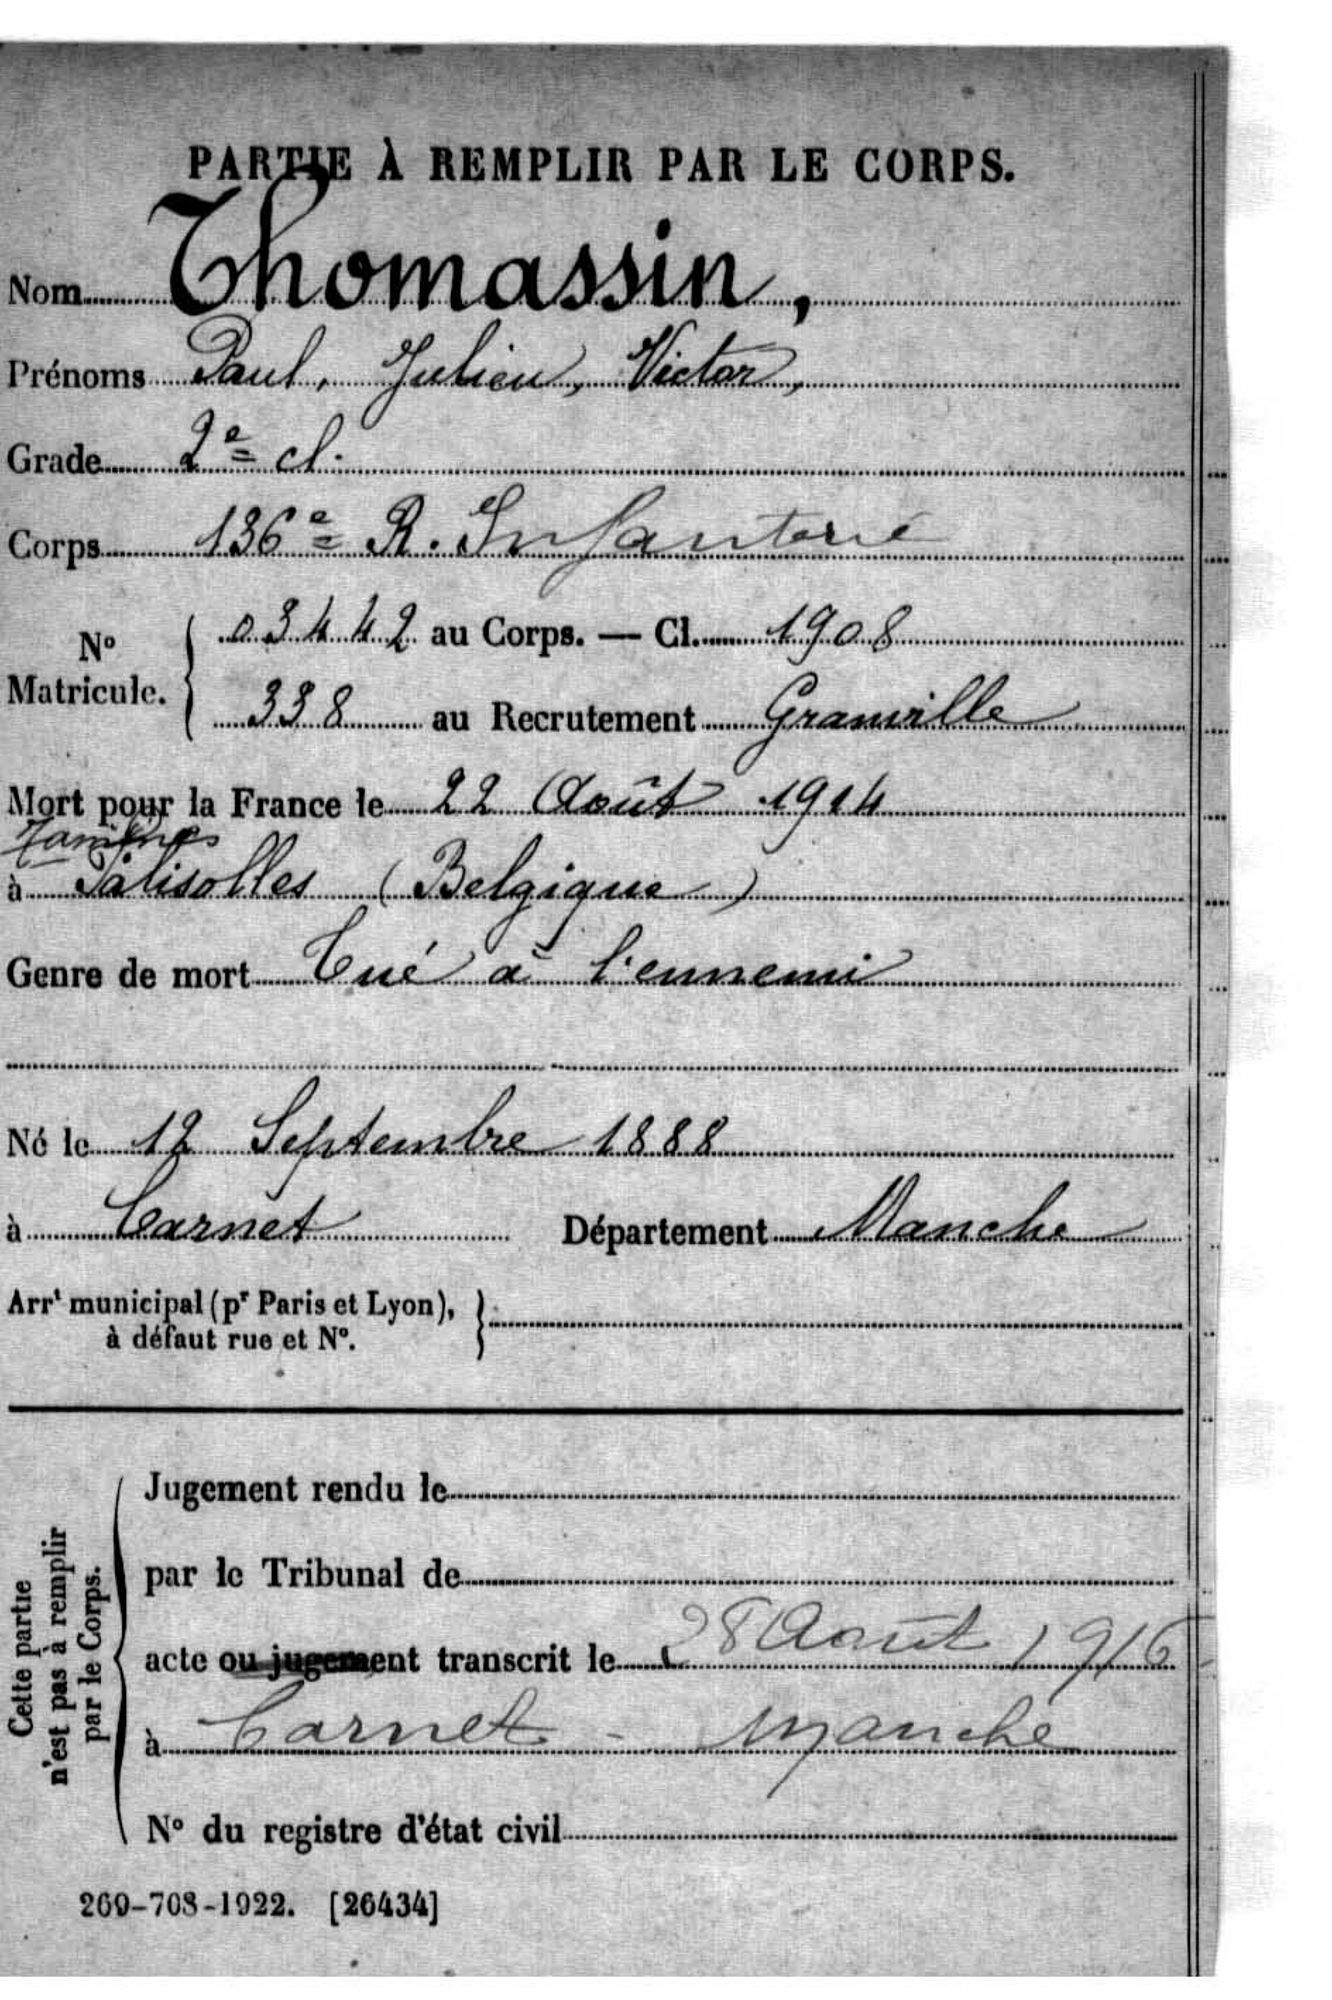 PARTIE À REMPLIR PAR LE CORPS.
Nom Thomassin,
Prénoms Paul, Julien, Victor,
Grade 2e cl.
Corps 136e R. Infanterie
No Matricule. 03442 au Corps. — Cl. 1908
338 au Recrutement Granville
Mort pour la France le 22 Août 1914
à Falisolles (Belgique)
Genre de mort Tué à l'ennemi
Né le 12 Septembre 1888
à Carnet Département Manche
Arrt municipal (pr Paris et Lyon),
à défaut rue et No.
Cette partie
n'est pas à remplir
par le Corps.
Jugement rendu le
par le Tribunal de
acte ou jugement transcrit le 28 Août 1916
à Carnet - Manche
No du registre d'état civil
269-708-1922. [26434]